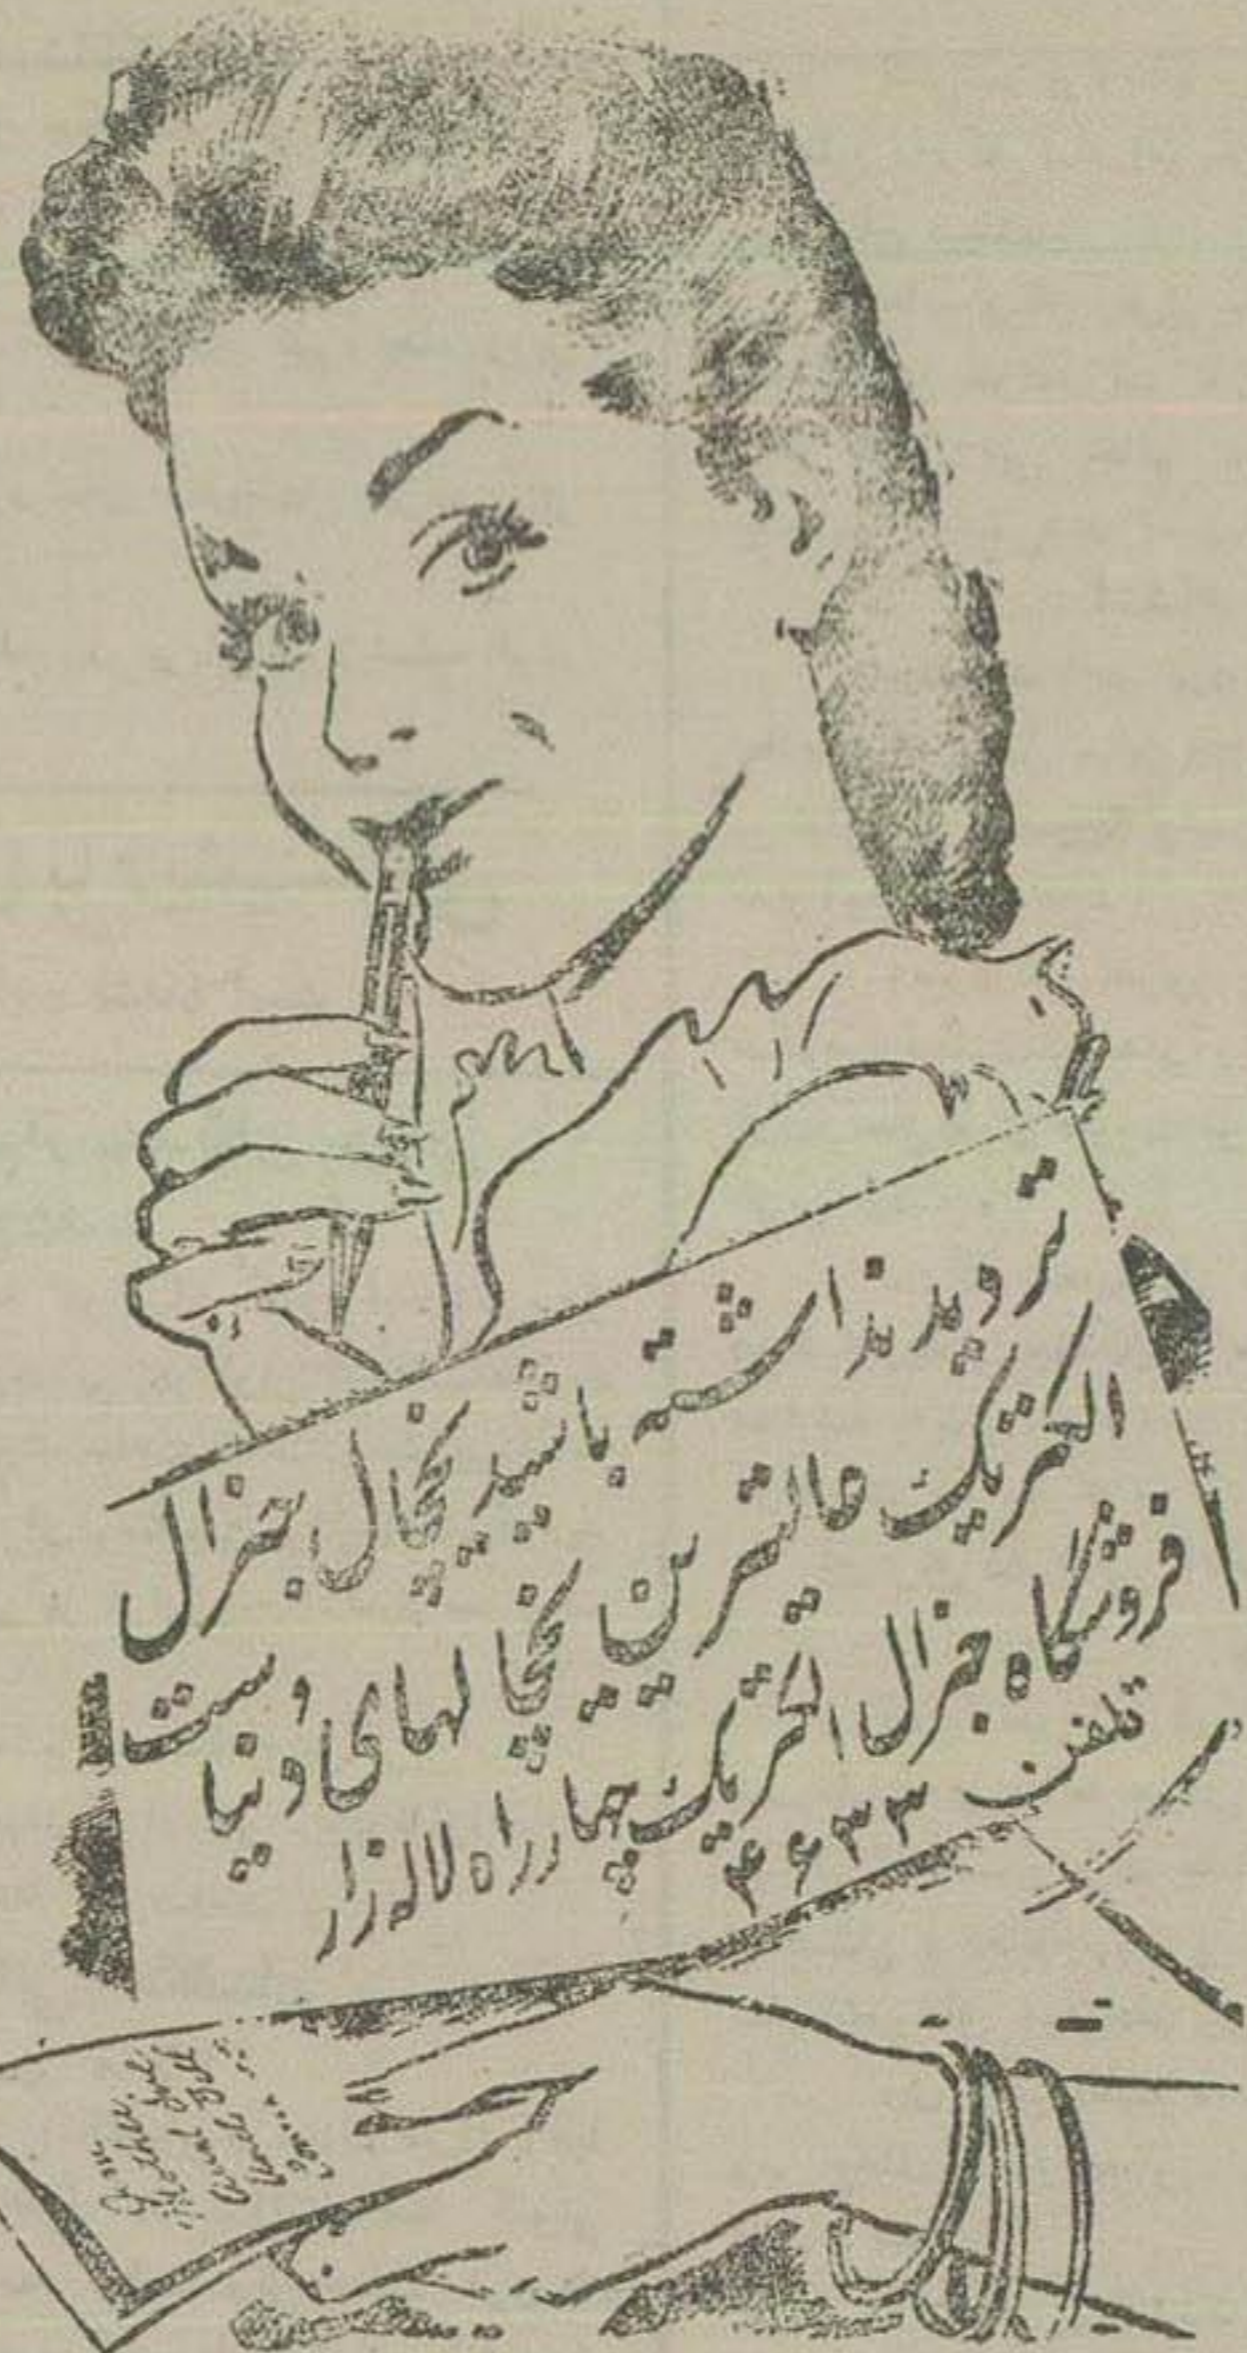 تردید نداشته باشید یخچال جنرال
الکتریک عالیترین یخچالهای دنیاست
فروشگاه جنرال الکتریک چهارراه لاله زار
تلفن ۴۶۳۳
Mother
Aunt
Uncle Bill